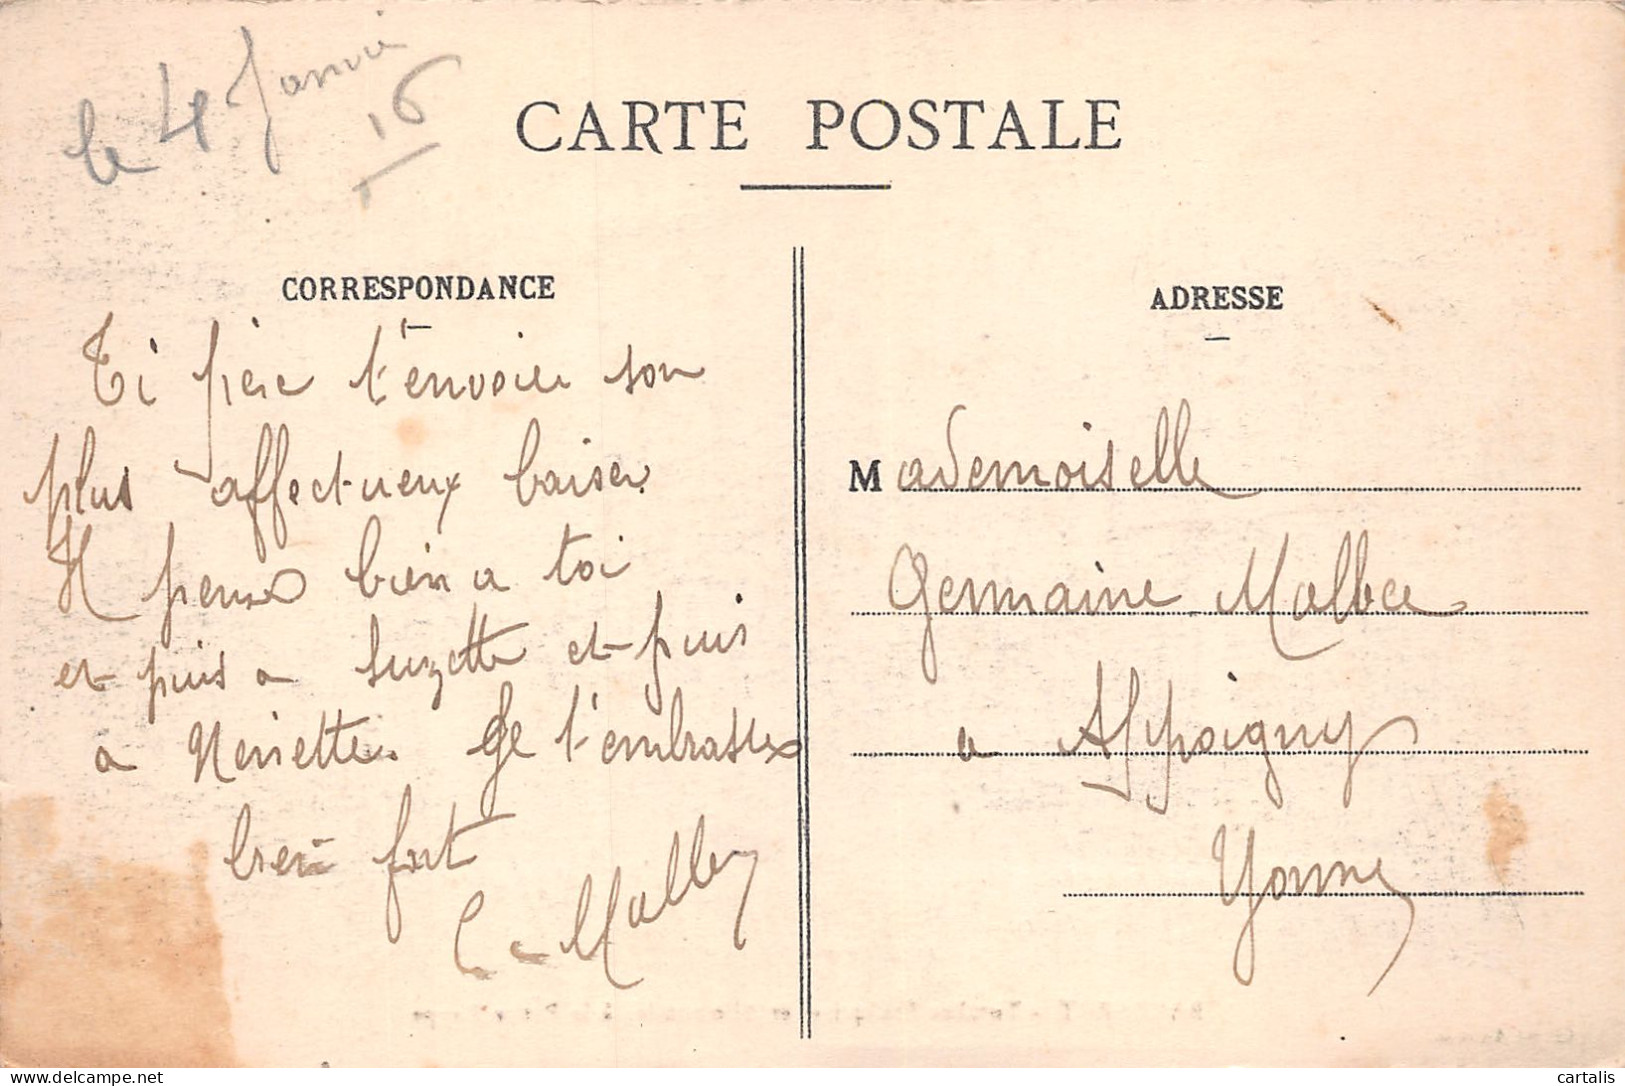 le 4 Janvier
16
CARTE POSTALE
CORRESPONDANCE
Ti père t'envoie son
plus affectueux baiser.
Il pense bien a toi
et puis a Suzette et puis
a Neinette. Je t'embrasse
bien fort
ADRESSE
Mademoiselle
Germaine
a Appoigny
Yonne
cartalis